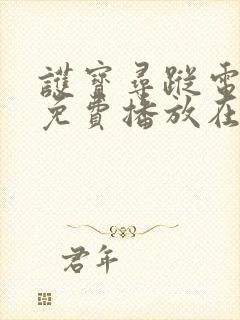 護寶尋蹤電
免費播放在
君年